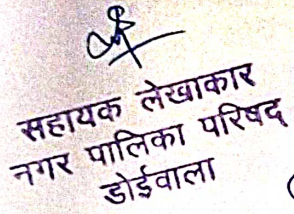 सहायक लेखाकार
नगर पालिका परिषद
डोईवाला